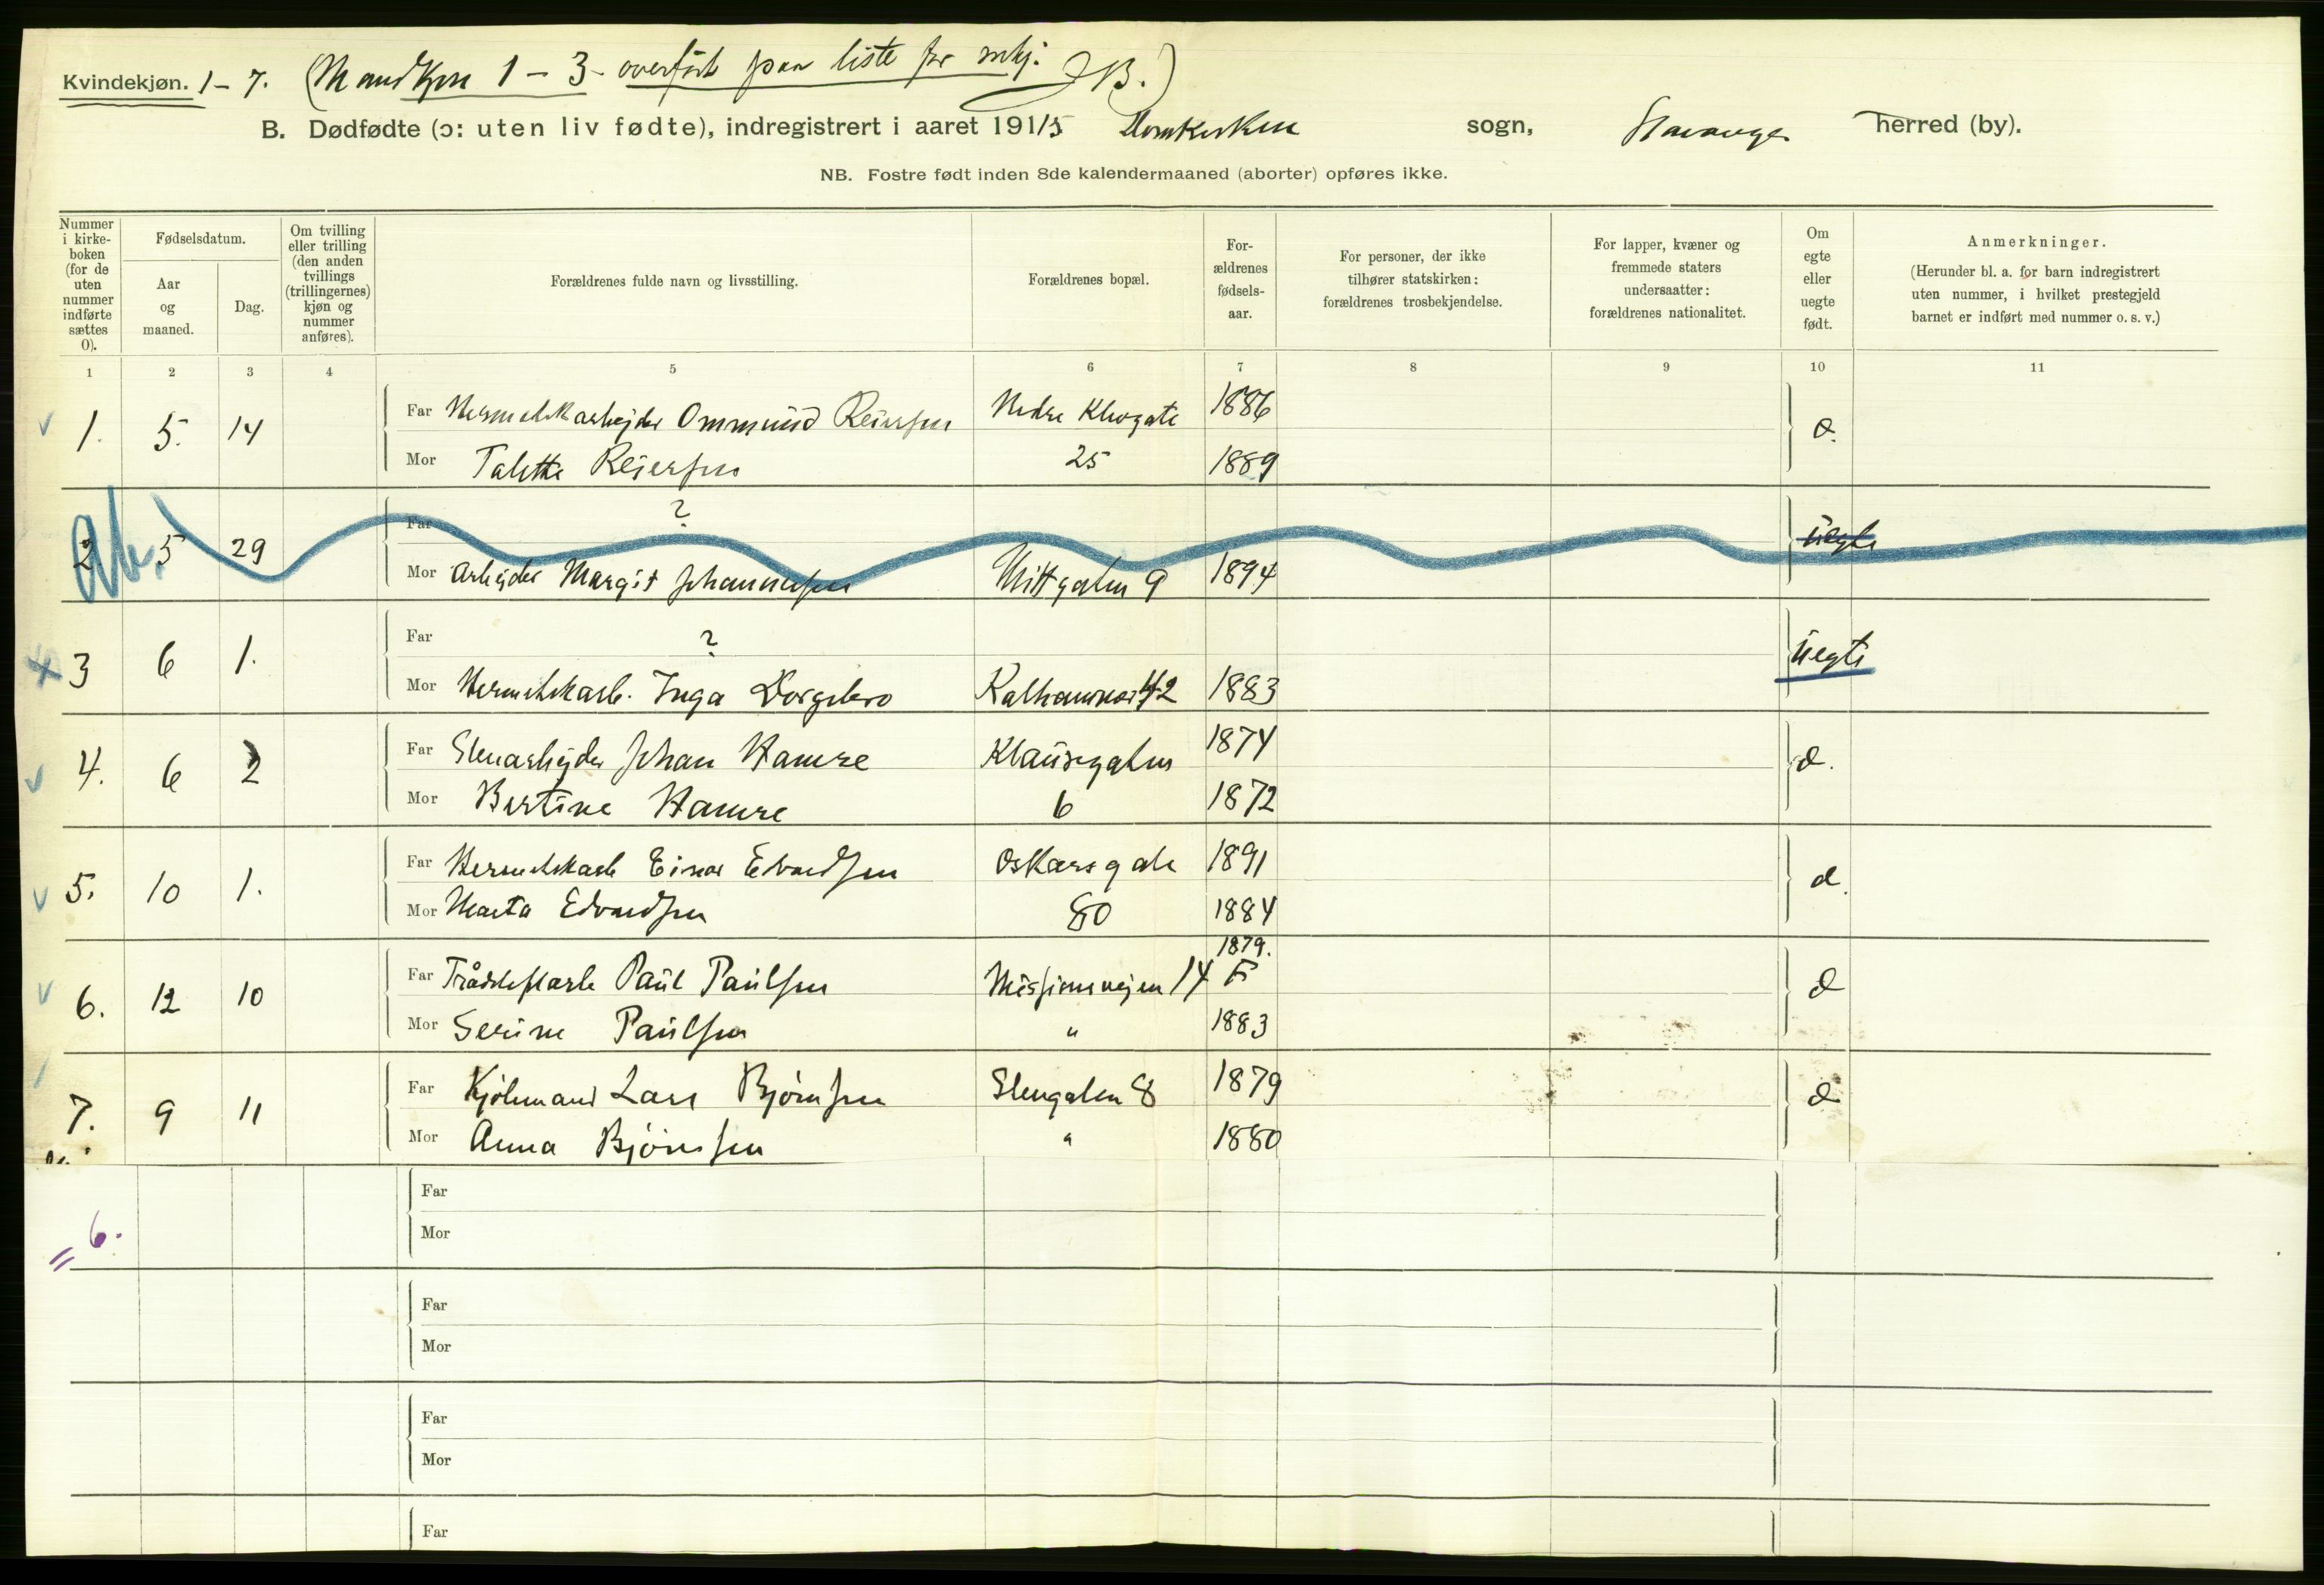 Kvindekjøn. 1-7. (Mandkjøn 1-3 overført paa liste for mkj. JB.)
B. Dødfødte (ɔ: uten liv fødte), indregistrert i aaret 191/5 Domkirken sogn, Stavanger herred (by).
NB. Fostre født inden 8de kalendermaaned (aborter) opføres ikke.
Nummer i kirke-boken (for de uten nummer indførte sættes 0).
Fødselsdatum.
Aar og maaned.
Dag.
Om tvilling eller trilling (den anden tvillings (trillingernes) kjøn og nummer anføres).
Forældrenes fulde navn og livsstilling.
Forældrenes bopæl.
For-ældrenes fødsels-aar.
For personer, der ikke tilhører statskirken: forældrenes trosbekjendelse.
For lapper, kvæner og fremmede staters undersaatter: forældrenes nationalitet.
Om egte eller uegte født.
Anmerkninger.
(Herunder bl. a. for barn indregistrert uten nummer, i hvilket prestegjeld barnet er indført med nummer o. s. v.)
1 2 3 4 5 6 7 8 9 10 11
1. 5. 14 Far Hermetikarbejder Ommund Reiersen Nedre 1886
Mor Talette Reiersen 25 1889
2 5 29 Far ? uegte
Mor Arbejder Margit Johannesen 9 1894
3 6 1. Far ? uegte
Mor Hermetikarb. Inga 1883
4. 6 2 Far Stenarbejder Johan Hamre Klausegaten 1874
Mor Bertine Hamre 6 1872
5. 10 1. Far Hermetikarb Einar Edvardsen Oskarsgate 1891
Mor Marta Edvardsen 80 1884
6. 12 10 Far Paul Paulsen Missionsvejen 14 1879.
Mor Serine Paulsen " 1883
7. 9 11 Far Lars Bjørnsen Stengaten 8 1879
Mor Anna Bjørnsen " 1880
Far
= 6.
Mor
Far
Mor
Far
Mor
Far